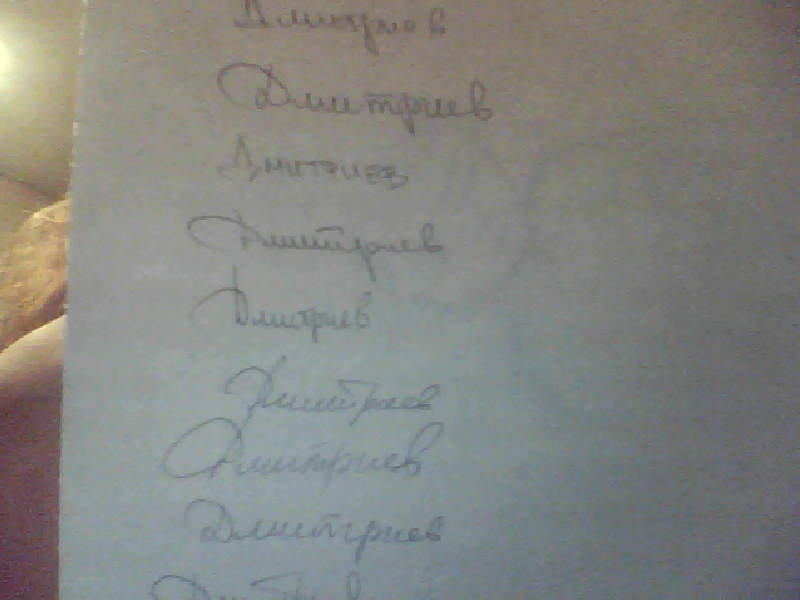 Дмитриев
Дмитриев
Дмитриев
Дмитриев
Дмитриев
Дмитриев
Дмитриев
Дмитриев